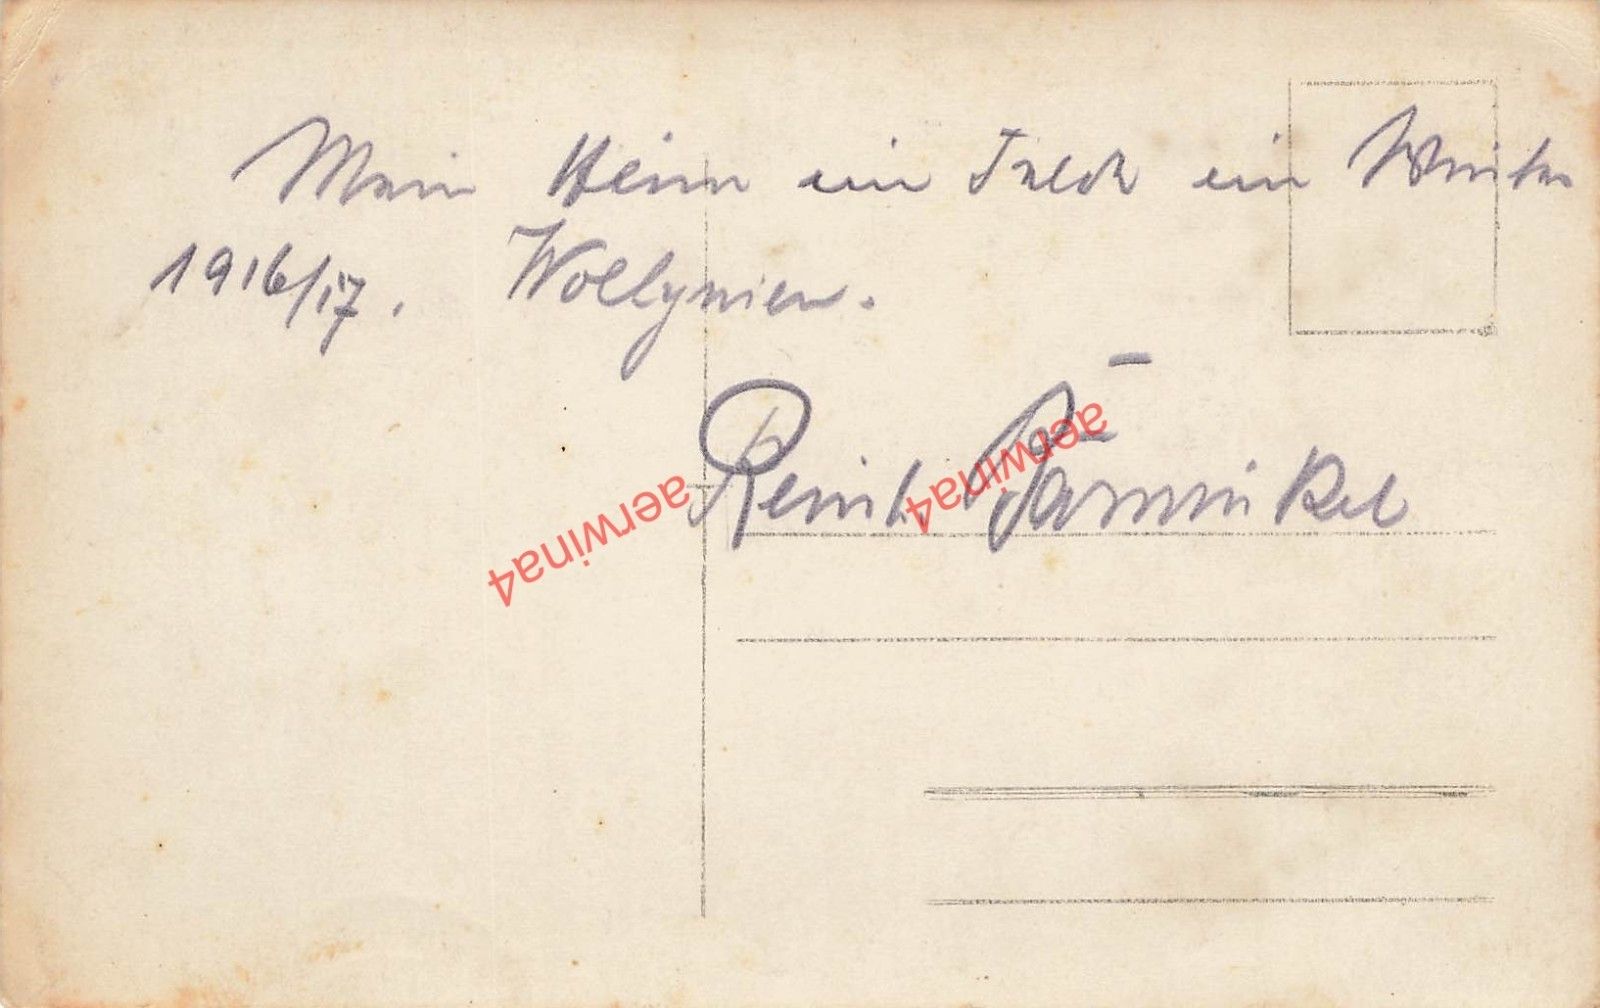 Mein Heim im Feld im Winter
1916/17. Wollynien.
Reinh.
aerwina4
aerwina4